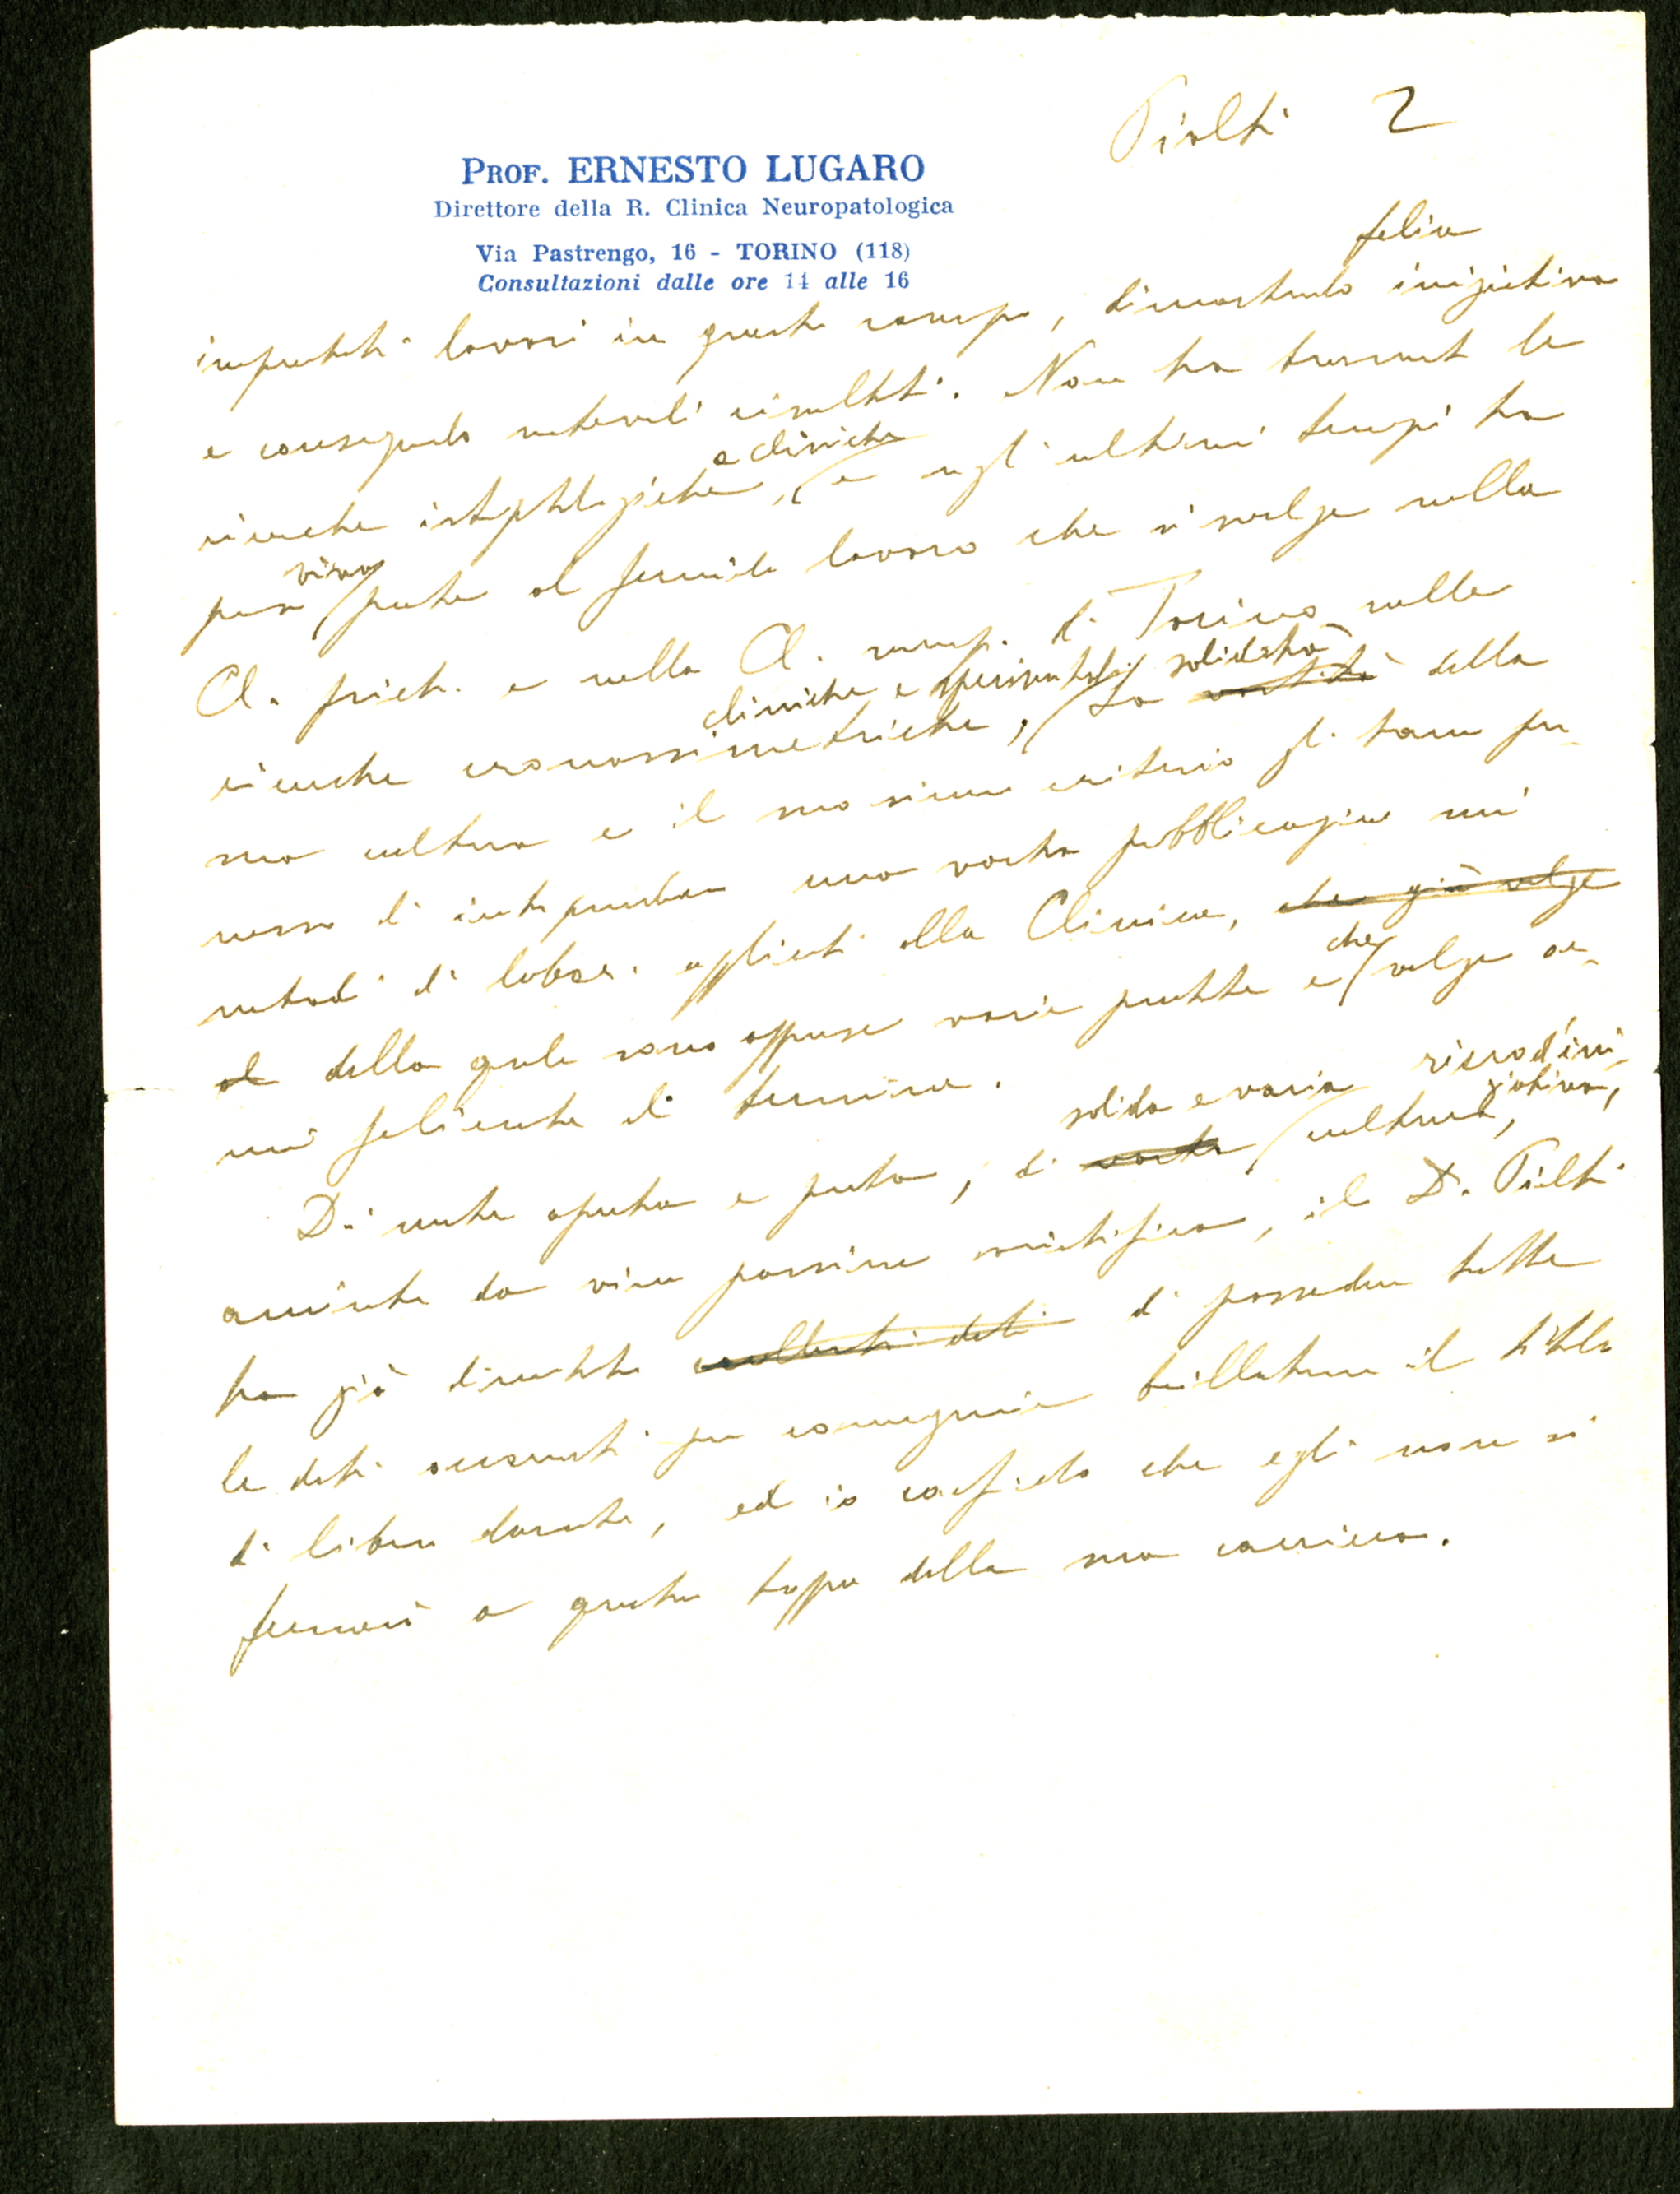 Piolti 2
PROF. ERNESTO LUGARO
Direttore della R. Clinica Neuropatologica
Via Pastrengo, 16 - TORINO (118)
Consultazioni dalle ore 14 alle 16
felice
importanti lavori in questo campo, dimostrando iniziativa
e conseguendo notevoli risultati. Non ha trascurato le
e cliniche
ricerche istopatologiche, e negli ultimi tempi ha
viva
preso parte al fervido lavoro che si svolge nella
Cl. psich. e nella Cl. neurop. di Torino nelle
cliniche e sperimentali solidità
ricerche cronassimetriche, La vastità della
sua cultura e il suo sicuro criterio gli hanno per-
messo di intraprendere una vasta pubblicazione sui
metodi di labor. applicati alla Clinica, che già volge
al della quale sono apparse varie puntate e che volge or-
mai felicemente al termine.
solida e varia ricco d'ini-
Di mente aperta e pronta, di vasta cultura, ziativa,
animato da viva passione scientifica, il D. Piolti
ha già dimostrato doti di possedere tutte
le doti occorrenti per conseguire brillantemente il titolo
di libero docente, ed io confido che egli non si
fermerà a questa tappa della sua carriera.